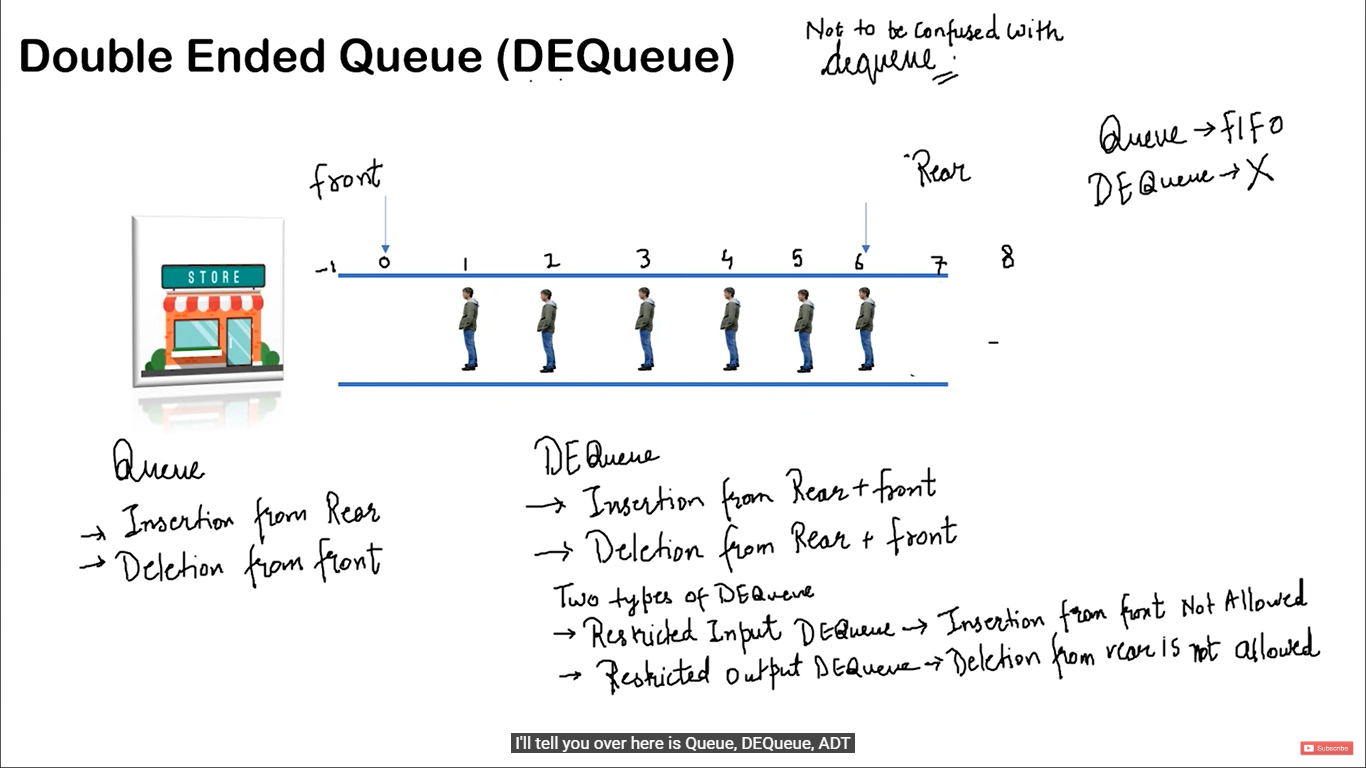 Double Ended Queue (DEQueue)
Not to be confused with
dequeue.
Queue → FIFO
DEQueue → X
front
Rear
-1 0 1 2 3 4 5 6 7 8
STORE
Queue
→ Insertion from Rear
→ Deletion from front
DEQueue
→ Insertion from Rear + front
→ Deletion from Rear + front
Two types of DEQueue
→ Restricted Input DEQueue → Insertion from front Not Allowed
→ Restricted Output DEQueue → Deletion from rear is not allowed
I'll tell you over here is Queue, DEQueue, ADT
Subscribe